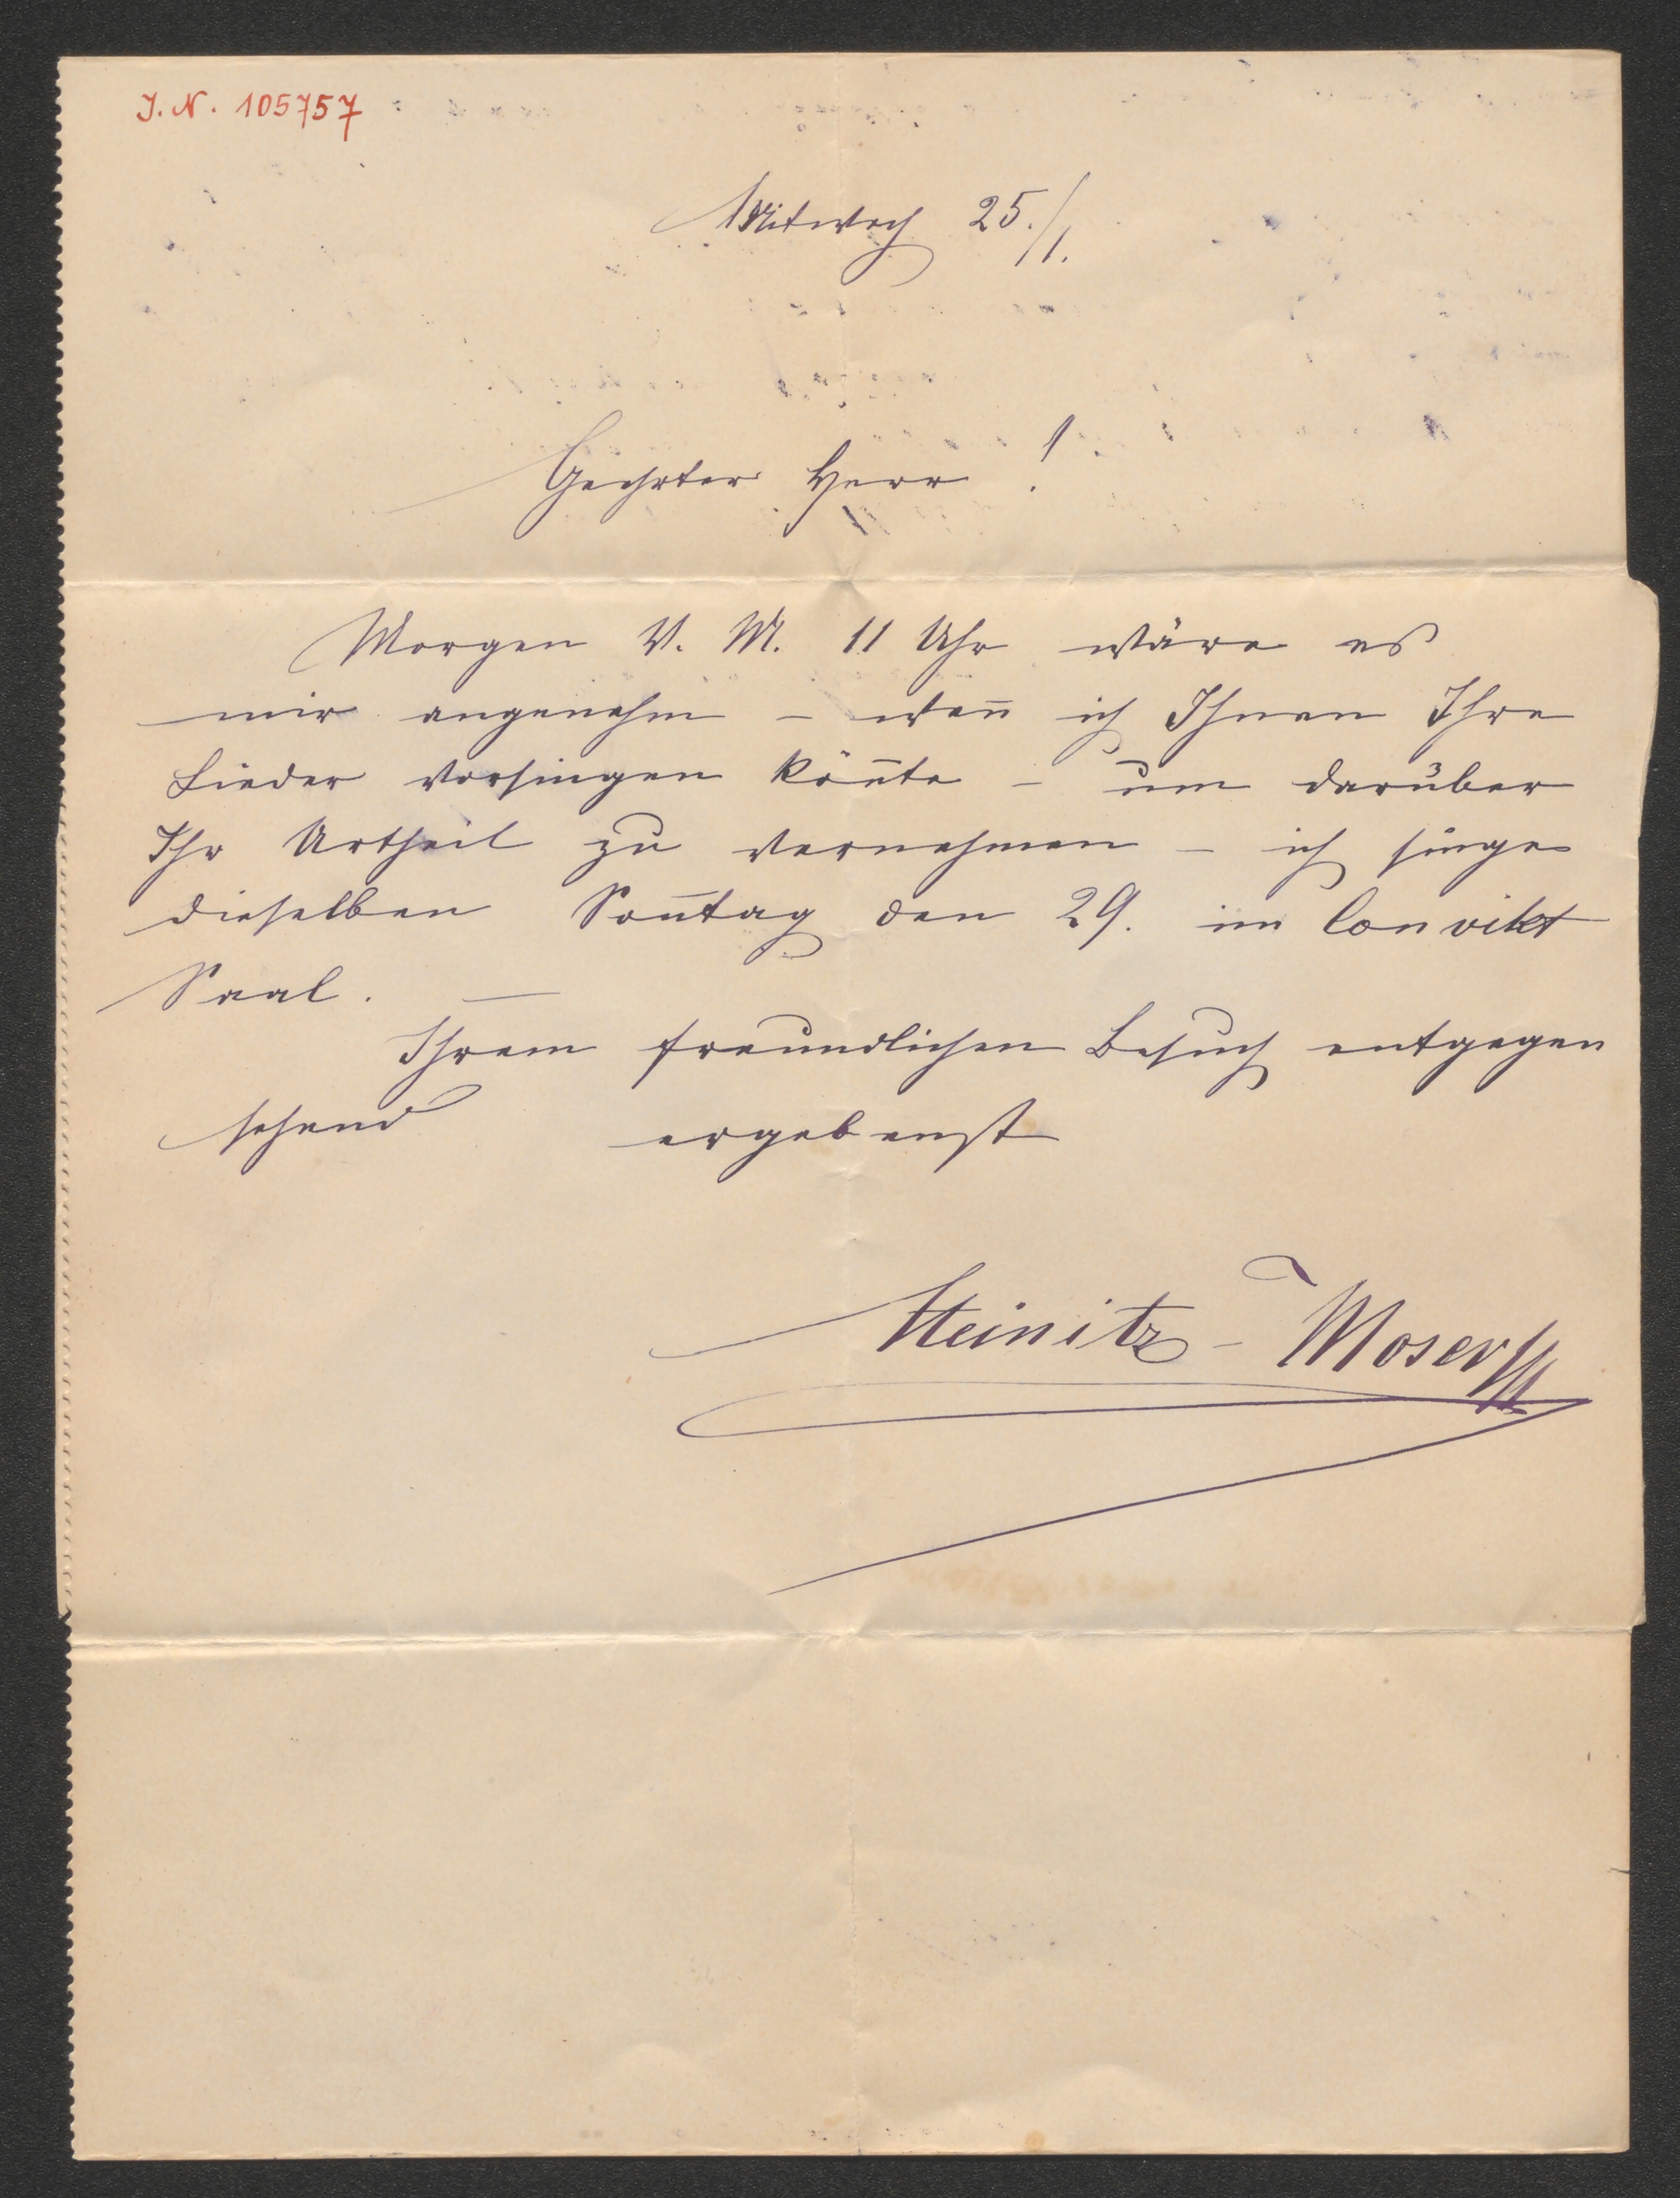 J. N. 105757
Mitwoch 25./1.
Geehrter Herr!
Morgen V. M. 11 Uhr wäre es
mir angenehm – weñ ich Ihnen Ihre
Lieder vorsingen köñte – um darüber
Ihr Urtheil zu vernehmen – ich singe
dieselben Soñtag den 29. im Convikt
Saal. —
Ihrem freundlichen Besuch entgegen
sehend ergebenst
Steinitz-Moser